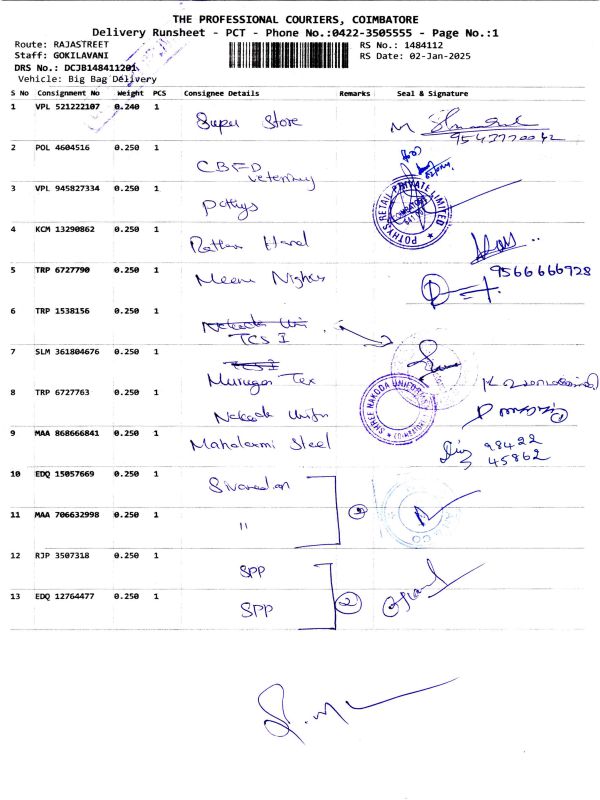 THE PROFESSIONAL COURIERS, COIMBATORE
Delivery Runsheet - PCT - Phone No.:0422-3505555 - Page No.:1
Route: RAJASTREET RS No.: 1484112
Staff: GOKILAVANI RS Date: 02-Jan-2025
DRS No.: DCJB148411201
Vehicle: Big Bag Delivery
S No Consignment No Weight PCS Consignee Details Remarks Seal & Signature
1 VPL 521222107 0.240 1 Super Store
9543770042
2 POL 4604516 0.250 1 CBFD veterinry
3 VPL 945827334 0.250 1 pothys
POTHYS RETAIL PRIVATE LIMITED
4 KCM 13290862 0.250 1 Hand
5 TRP 6727790 0.250 1 Meenu
9566666928
6 TRP 1538156 0.250 1 Nakoda Uni
TCS I
7 SLM 361804676 0.250 1 TCS I
Murugan Tex
8 TRP 6727763 0.250 1 Nakoda Unifn
SHREE NAKODA UNIFORMS
9 MAA 868666841 0.250 1 Mahalaxmi Steel
98422
45862
10 EDQ 15057669 0.250 1
11 MAA 706632998 0.250 1 "
12 RJP 3507318 0.250 1 SPP
13 EDQ 12764477 0.250 1 SPP 2